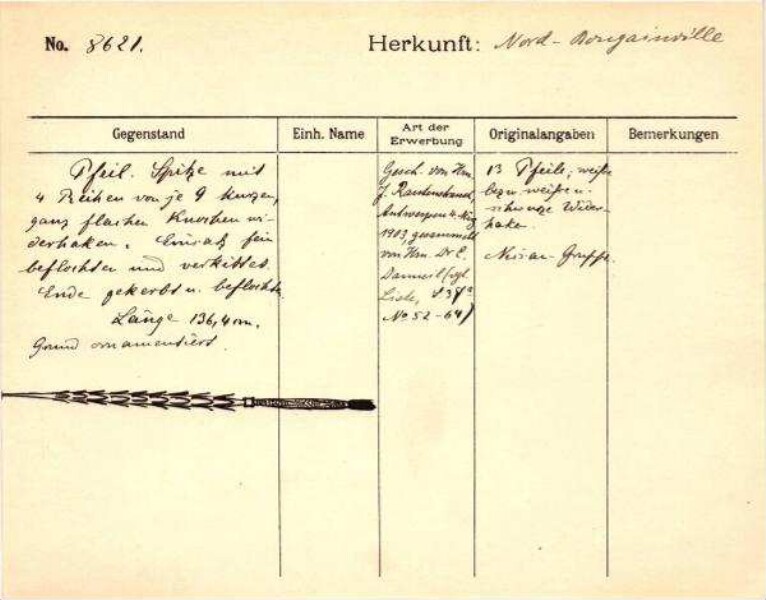 No. 8621.
Herkunft: Nord-Bougainville
Gegenstand
Einh. Name
Art der Erwerbung
Originalangaben
Bemerkungen
Pfeil. Spitze mit
4 Reihen von je 9 kurzen,
ganz flachen Knochen wi-
derhaken. Einsatz fein
beflochten und verkittet.
Ende gekerbt u. beflochten.
Länge 136,4 cm.
Grund ornamentiert.
Gesch. von Hrn.
J. Rautenstrauch,
Antwerpen
1903, gesammelt
von Hrn. Dr. E.
(vgl.
Liste,
No 52-64)
13 Pfeile, weiße
bezw weiße u.
schwarze Wider-
haken.